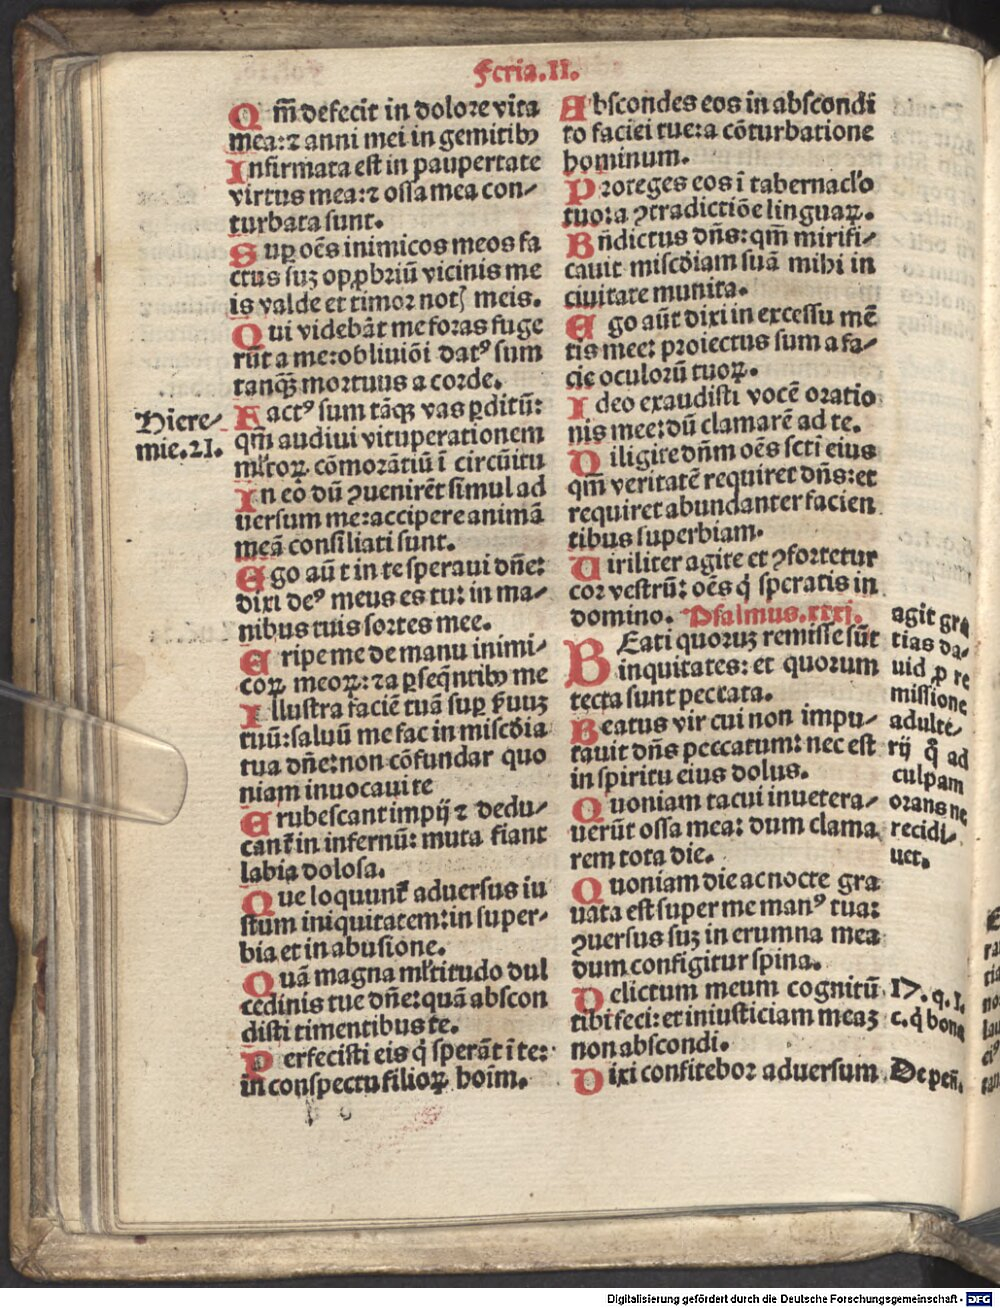 Feria.II.
Qm̄ defecit in dolore vita
mea:⁊ anni mei in gemitibꝰ
Infirmata est in paupertate
virtus mea:⁊ ossa mea con-
turbata sunt.
Suꝑ oēs inimicos meos fa
ctus suꝫ opꝓbriū vicinis me
is valde et timor notꝭ meis.
Qui videbāt me foras fuge
rūt a me:obliuiōi datꝰ sum
tanqꝫ mortuus a corde.
Factꝰ sum tāqꝫ vas ꝑditū:
qm̄ audiui vituperationem
ml̄toꝝ cōmorātiū ī circūitu
In eo dū ꝯuenirēt simul ad
uersum me:accipere animā
meā consiliati sunt.
Ego aūt in te speraui dn̄e:
dixi deꝰ meus es tu: in ma-
nibus tuis sortes mee.
Eripe me de manu inimi-
coꝝ meoꝝ:⁊ a ꝑseqn̄tibꝰ me
Illustra faciē tuā suꝑ ẜuuꝫ
tuū:saluū me fac in misc̄dia
tua dn̄e:non cōfundar quo
niam inuocaui te
Erubescant impij ⁊ dedu-
cant̄ in infernū: muta fiant
labia dolosa.
Que loquunt̄ aduersus iu
stum iniquitatem:in super-
bia et in abusione.
Quā magna ml̄titudo dul
cedinis tue dn̄e:quā abscon
disti timentibus te.
Perfecisti eis q̇ sperāt ī te:
in conspectu filioꝝ hoīm.
Hiere-
mie.21.
Abscondes eos in abscondi
to faciei tue:a cōturbatione
hominum.
Proteges eos ī tabernacl̄o
tuo:a ꝯtradictiōe linguaꝝ.
Bn̄dictus dn̄s:qm̄ mirifi-
cauit misc̄diam suā mihi in
ciuitate munita.
Ego aūt dixi in excessu mē
tis mee: proiectus sum a fa-
cie oculorū tuoꝝ.
Ideo exaudisti vocē oratio
nis mee:dū clamarē ad te.
Diligite dn̄m oēs scti eius
qm̄ veritatē requiret dn̄s:et
requiret abundanter facien
tibus superbiam.
Uiriliter agite et ꝯfortetur
cor vestrū: oēs q̇ speratis in
domino. Psalmus.xxxj.
BEati quoruꝫ remisse sūt
inquitates: et quorum
tecta sunt peccata.
Beatus vir cui non impu-
tauit dn̄s peccatum: nec est
in spiritu eius dolus.
Quoniam tacui inuetera-
uerūt ossa mea: dum clama
rem tota die.
Quoniam die ac nocte gra
uata est super me manꝰ tua:
ꝯuersus suꝫ in erumna mea
dum configitur spina.
Delictum meum cognitū
tibi feci: et iniusticiam meaꝫ
non abscondi.
Dixi confitebor aduersum
agit gra
tias da-
uid ꝓ re
missione
adulte-
rij q̄ ad
culpam
orans ne
recidi-
uet.
17.q.1.
c.q̇ bona
De pen̄.
Digitalisierung gefördert durch die Deutsche Forschungsgemeinschaft - DFG